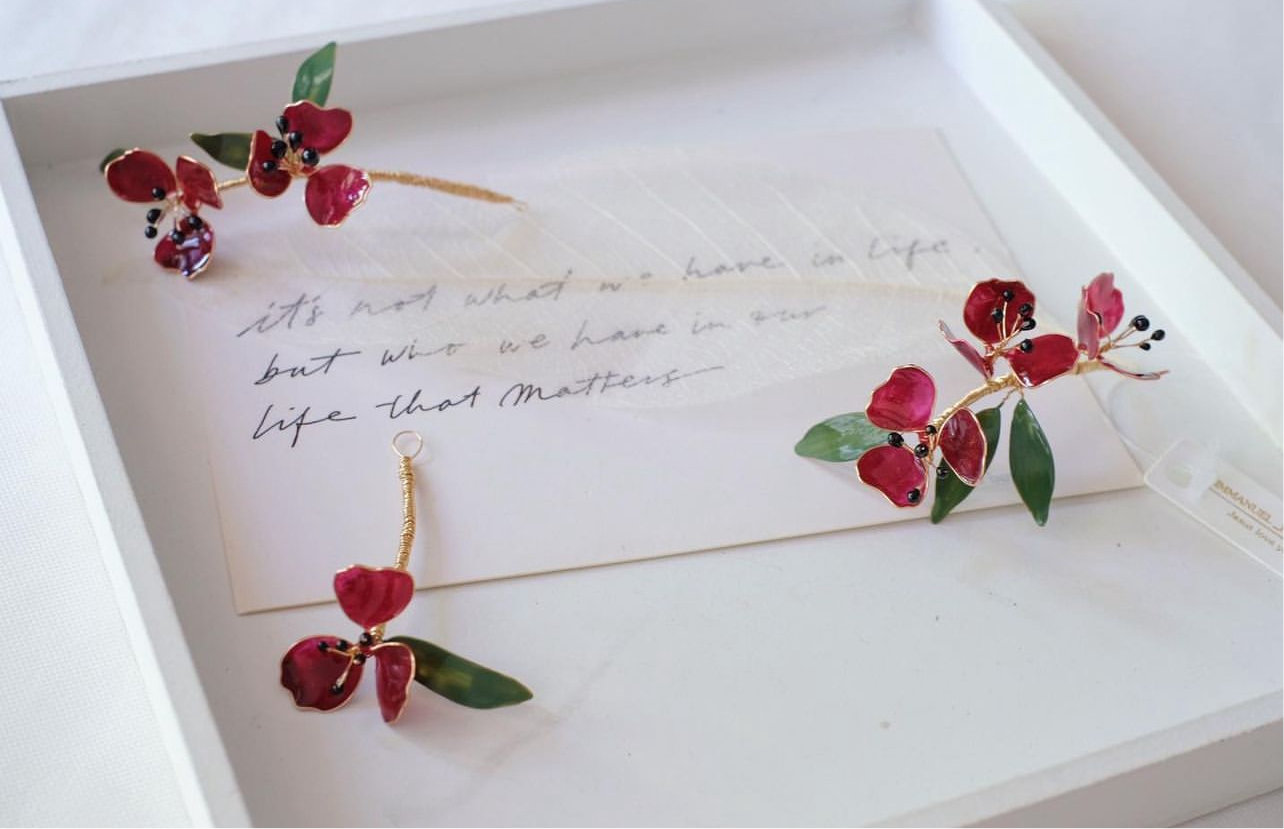 it's not what we have in life.
but who we have in our
life that matters
IMMANUEL
Jesus love